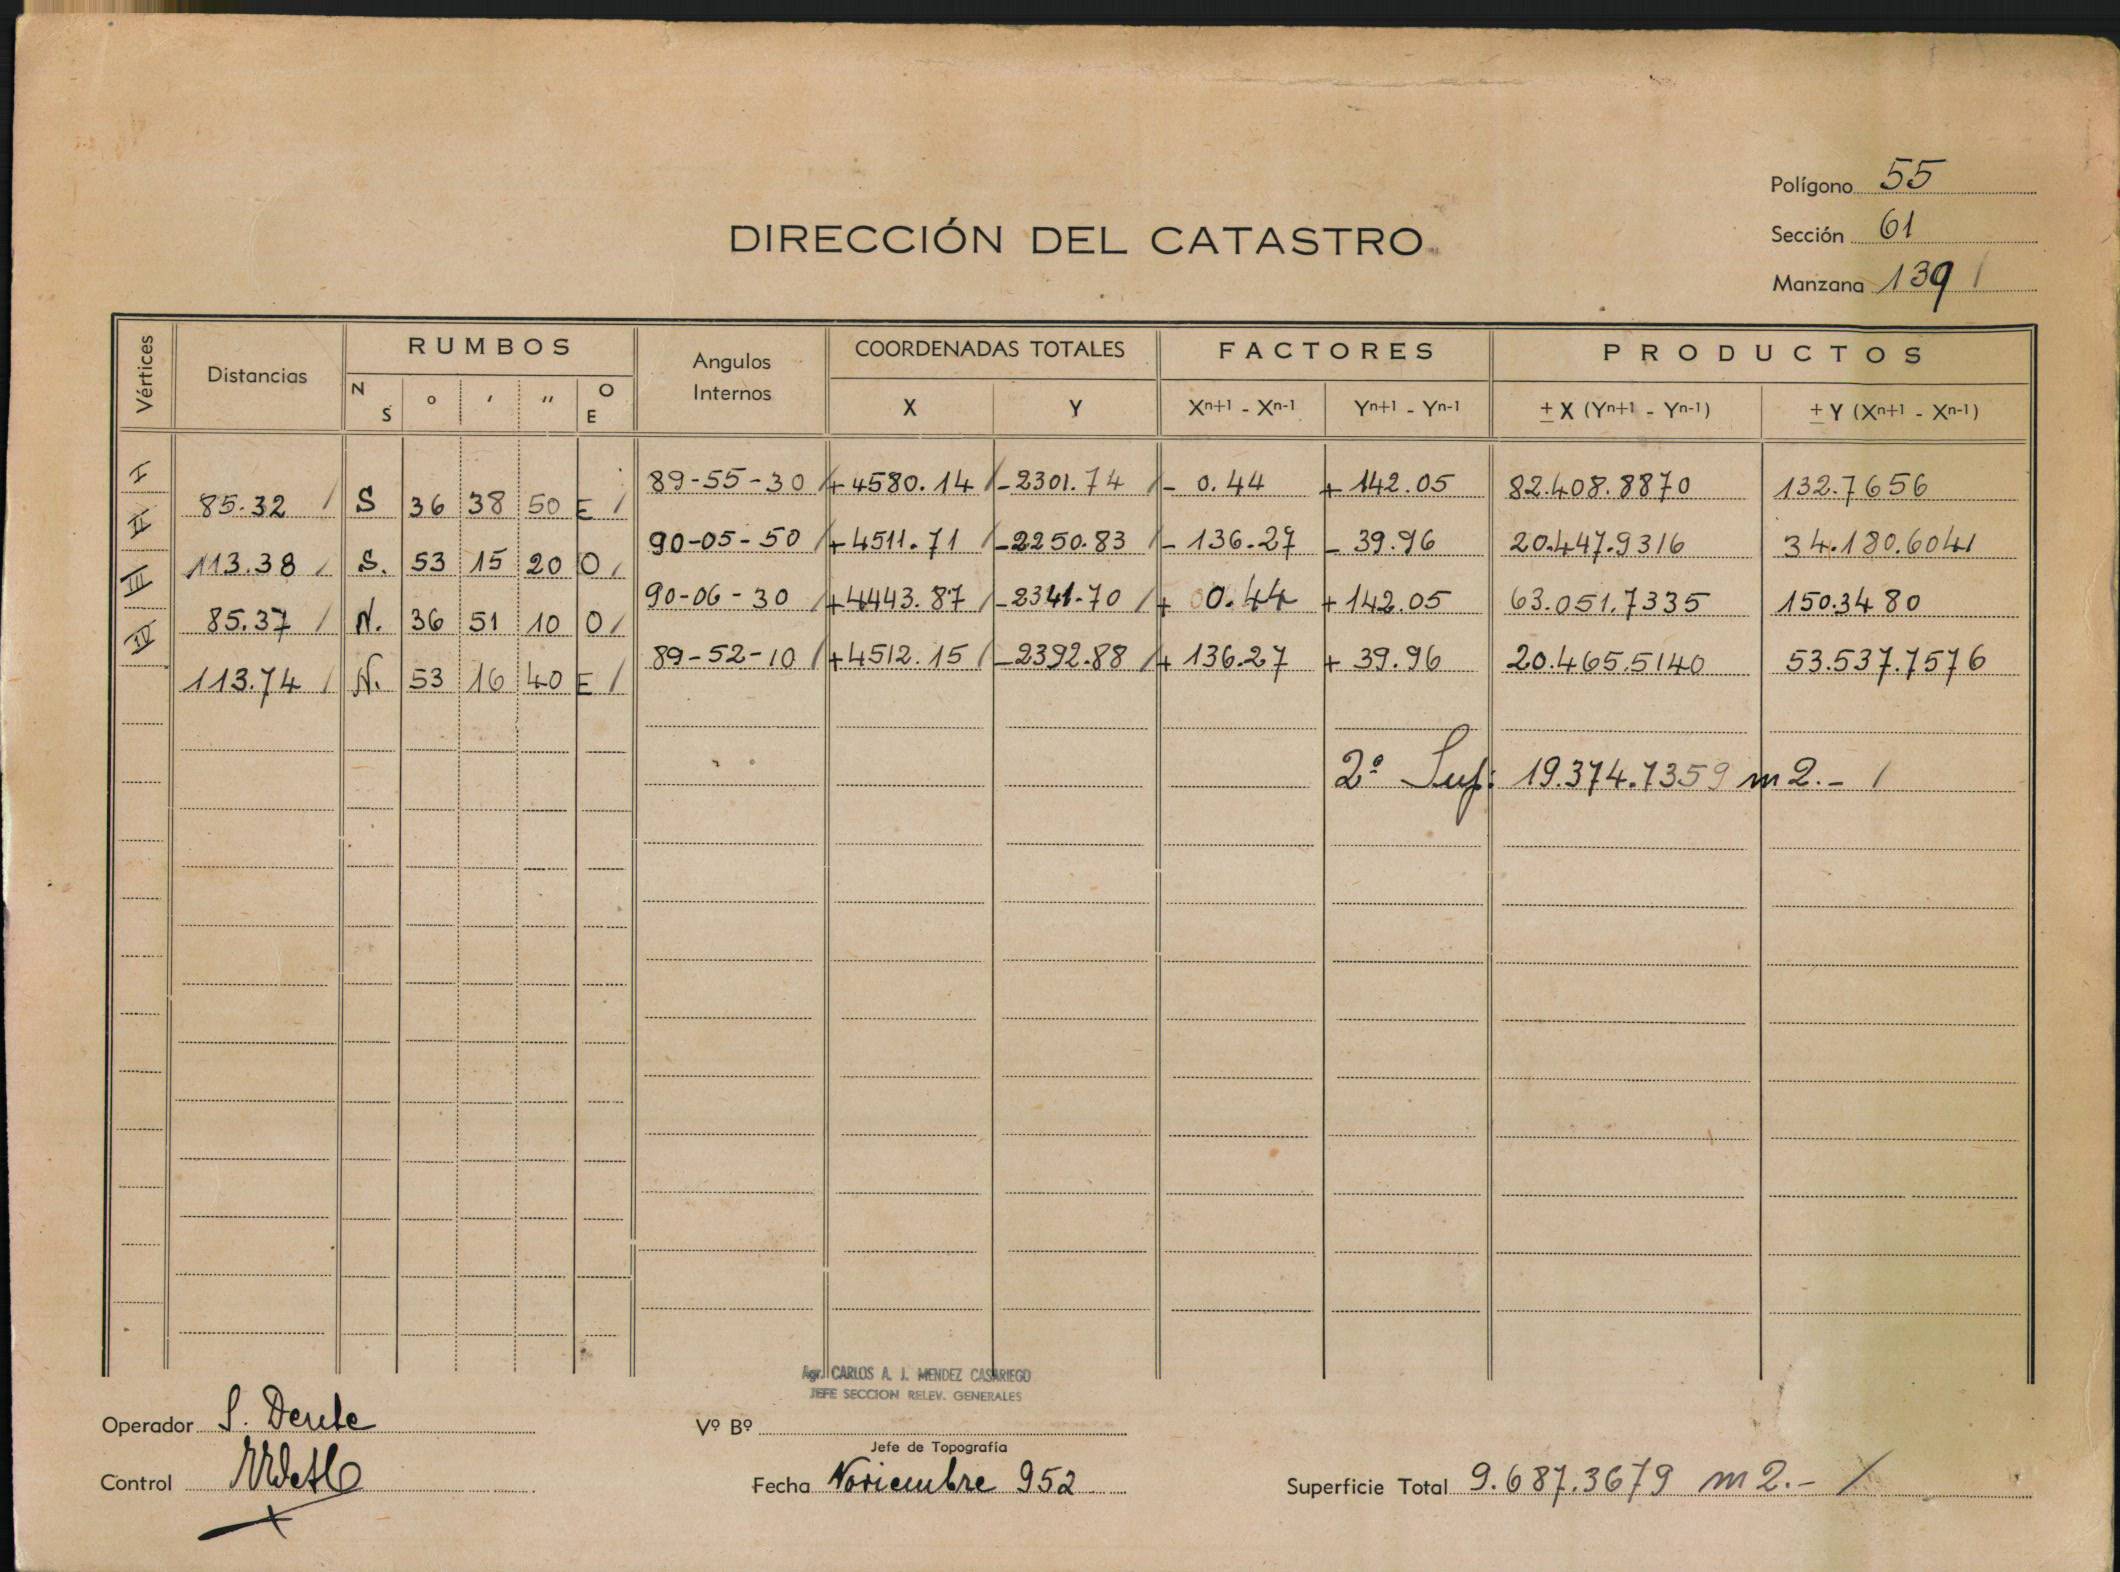 Polígono 55
DIRECCIÓN DEL CATASTRO
Sección 61
Manzana 139 /
Vértices Distancias RUMBOS Angulos Internos COORDENADAS TOTALES FACTORES PRODUCTOS
N S ° ′ ″ O E X Y Xn+1 - Xn-1 Yn+1 - Yn-1 ± X (Yn+1 - Yn-1) ± Y (Xn+1 - Xn-1)
I 89-55-30 / +4580.14 / -2301.74 / - 0.44 + 142.05 82.408.8870 132.7656
85.32 / S 36 38 50 E /
II 90-05-50 / +4511.71 / -2250.83 / - 136.27 - 39.96 20.447.9316 34.180.6041
113.38 / S. 53 15 20 O /
III 90-06-30 / +4443.87 / -2341.70 / + 0.44 + 142.05 63.051.7335 150.3480
85.37 / N. 36 51 10 O /
IV 89-52-10 / +4512.15 / -2392.88 / + 136.27 + 39.96 20.465.5140 53.537.7576
113.74 / N. 53 16 40 E /
2º Sup: 19.374.7359 m2.- /
Agr. CARLOS A. J. MENDEZ CASARIEGO
JEFE SECCION RELEV. GENERALES
Operador S. Dente
Vº Bº
Jefe de Topografía
Control
Fecha Noviembre 952
Superficie Total 9.687.3679 m2.- /